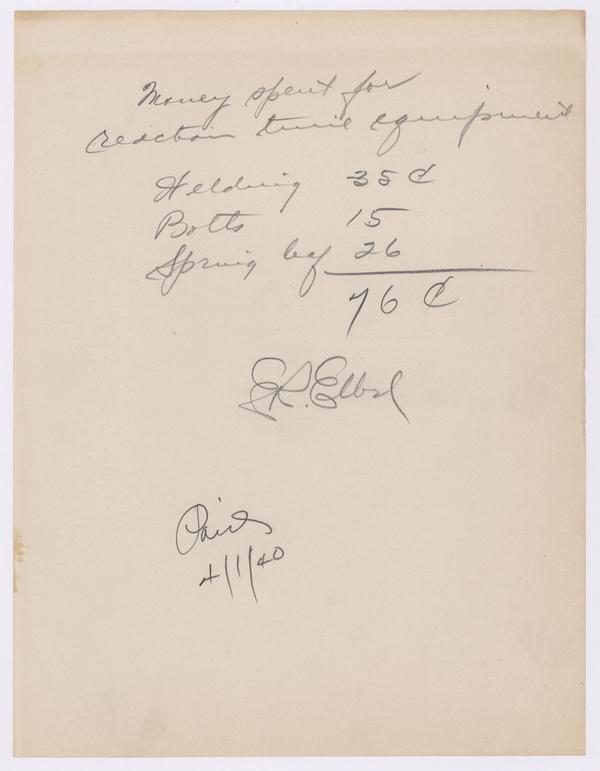 Money spent for
reaction time equipment
Welding 35¢
Bolts 15
Spring leaf 26
76¢
E.R. Elbel
Paid
4/1/40